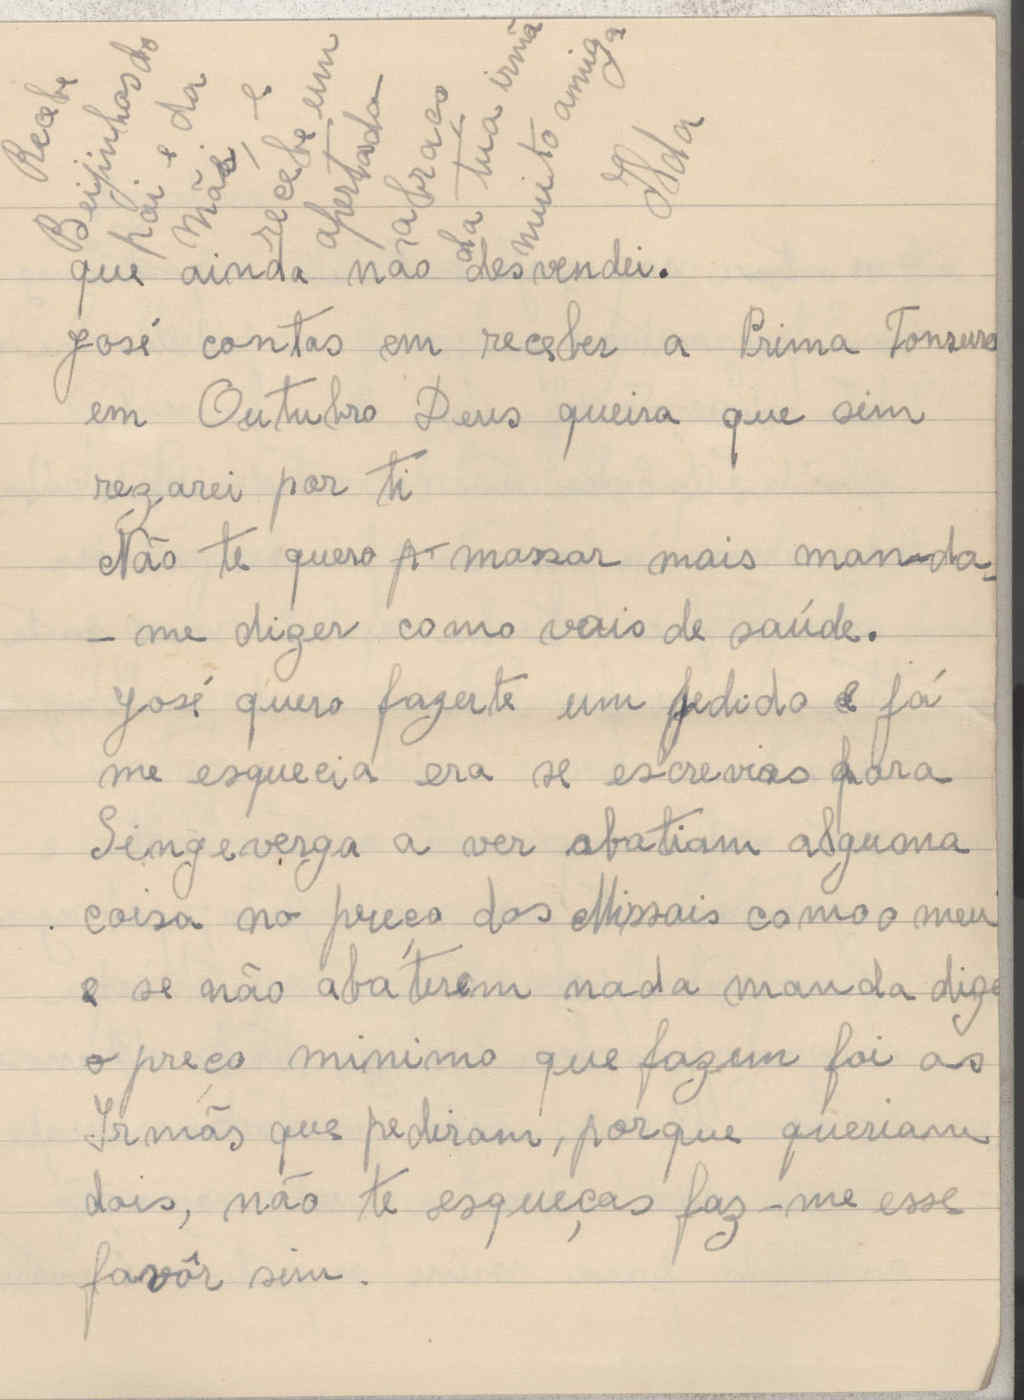 Recebe
Beijinhos do
pai e da
mãe, e
recebe um
apertada
abraço
da tua irmã
muito amiga
Ilda
que ainda não desvendei.
José contas em receber a Prima Tonsura
em Outubro Deus queira que sim
rezarei por ti
Não te quero massar mais manda-
-me dizer como vais de saúde.
José quero fazerte um pedido e já
me esquecia era se escrevias para
Singeverga a ver abatiam alguma
coisa no preço dos Missais como o meu
e se não abáterem nada manda dize
o preço minimo que fazem foi as
Irmãs que pediram, porque queriam
dois, não te esqueças faz-me esse
favôr sim.